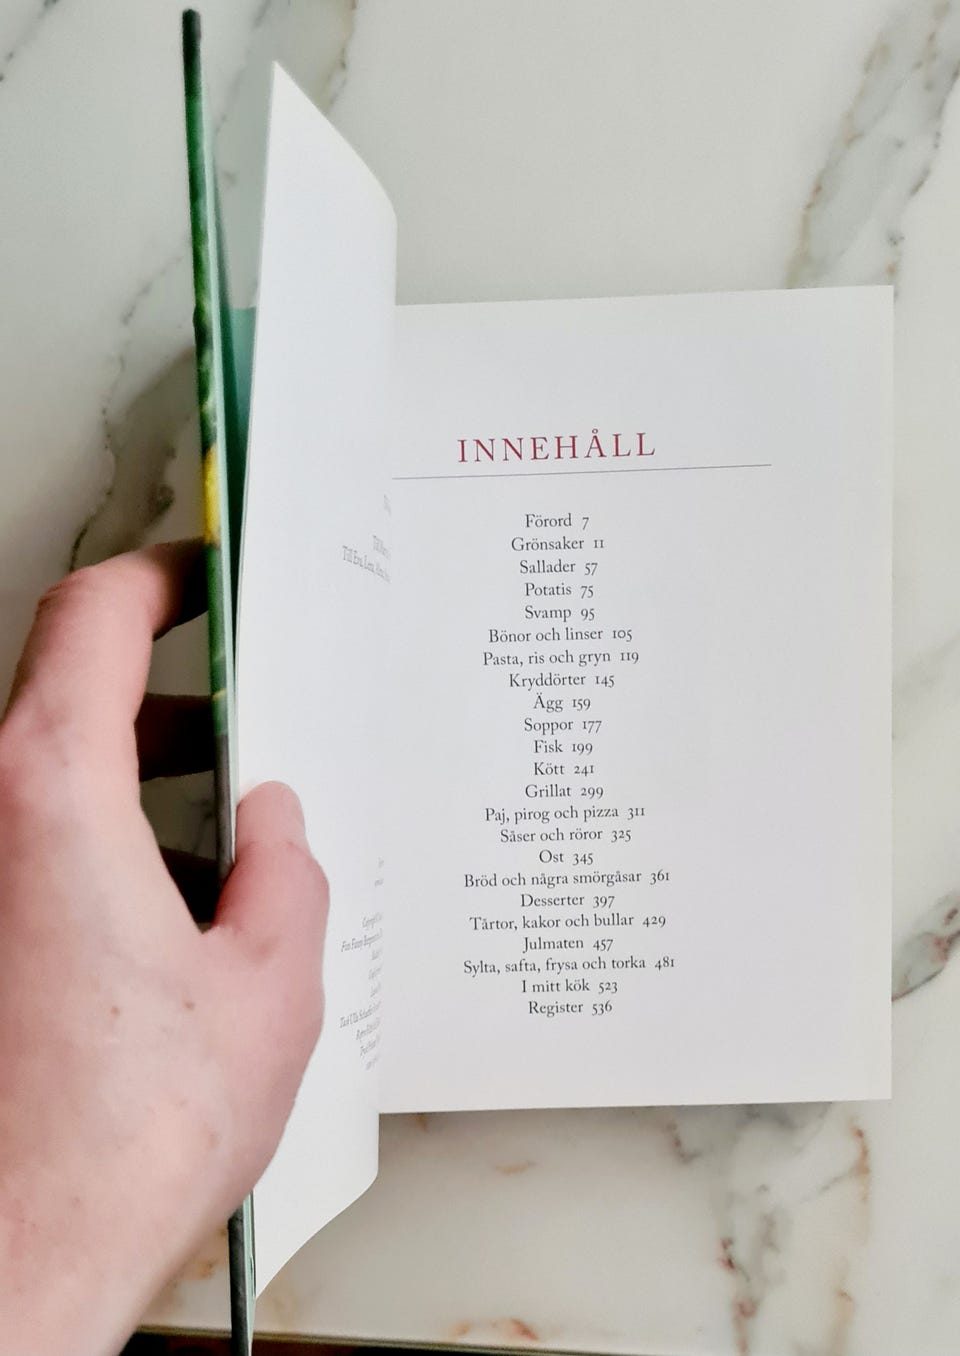 INNEHÅLL
Förord 7
Grönsaker 11
Sallader 57
Potatis 75
Svamp 95
Bönor och linser 105
Pasta, ris och gryn 119
Kryddörter 145
Ägg 159
Soppor 177
Fisk 199
Kött 241
Grillat 299
Paj, pirog och pizza 311
Såser och röror 325
Ost 345
Bröd och några smörgåsar 361
Desserter 397
Tårtor, kakor och bullar 429
Julmaten 457
Sylta, safta, frysa och torka 481
I mitt kök 523
Register 536
Till Eva, Lena,
Copyright